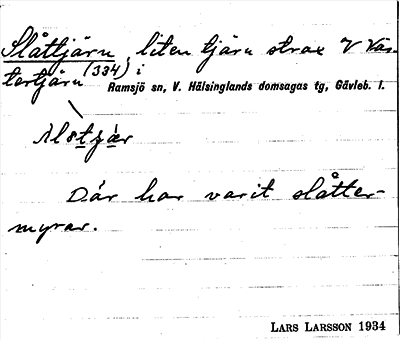 Slåttjärn, liten tjärn strax V Väs-
tertjärn (334) i
Ramsjö sn, V. Hälsinglands domsagas tg, Gävleb. l.
Där har varit slåtter-
myrar.
LARS LARSSON 1934